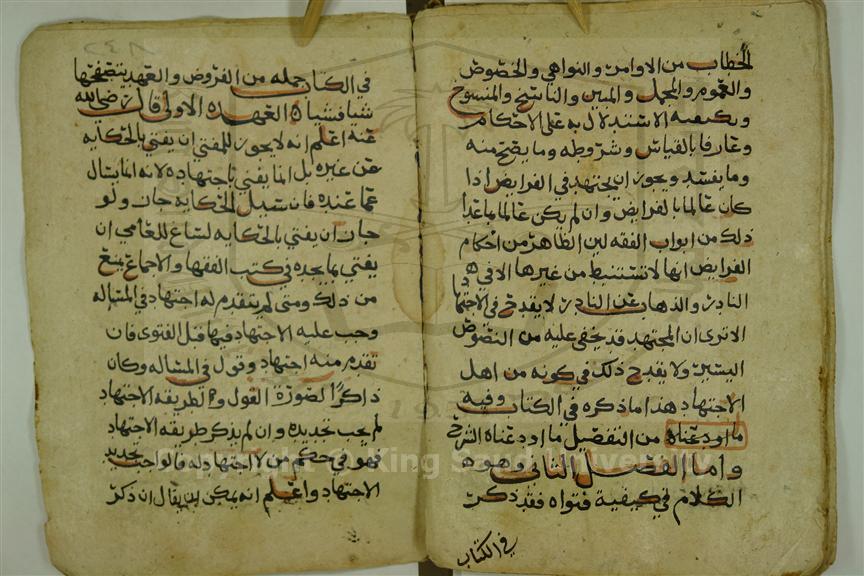 الخطاب من الاوامر والنواهي والخصوص
والعموم والمجمل والمبين والناسخ والمنسوخ
وبكيفية الاستدلال به على الاحكام
وعارفا بالقياس وشروطه وما يصح منه
وما يفسد ويجوز ان يجتهد في الفرايض اذا
كان عالما بالفرايض وان لم يكن عالما بما عدا
ذلك من ابواب الفقه لان الظاهر من احكام
الفرايض انها لا تستنبط من غيرها الا في
النادر والذهاب عن النادر لا يقدح في الاجتهاد
الا ترى ان المجتهد قد يخفى عليه من النصوص
اليسير ولا يقدح ذلك في كونه من اهل
الاجتهاد هذا ما ذكره في الكتاب وفيه
ما اودعناه من التفصيل ما اودعناه الشرح
واما الفصل الثاني وهو
الكلام في كيفية فتواه فقد ذكر
في الكتاب
في الكتاب جمله من الفروض والعهد يتضحها
شيا فشيا العهده الاولى قال رضي الله
عنه اعلم انه لا يجوز للمفتي ان يفتي بالحكايه
عن غيره بل انما يفتي باجتهاده لانه انما يسال
عما عنده فان سيل الحكايه جاز ولو
جاز ان يفتي بالحكايه لساغ للعامي ان
يفتي بما يجده في كتب الفقها والاجماع يمنع
من ذلك ومتى لم يتقدم له اجتهاد في المساله
وجب عليه الاجتهاد فيها قبل الفتوى فان
تقدم منه اجتهاد وقول في المساله وكان
ذاكرا لصورة القول ولطريقه الاجتهاد
لم يجب تجديده وان لم يذكر طريقه الاجتهاد
فهو في حكم من لا اجتهاد له فالواجب تجديد
الاجتهاد واعلم انه يمكن ان يقال ان ذكر
Copyright © King Saud University